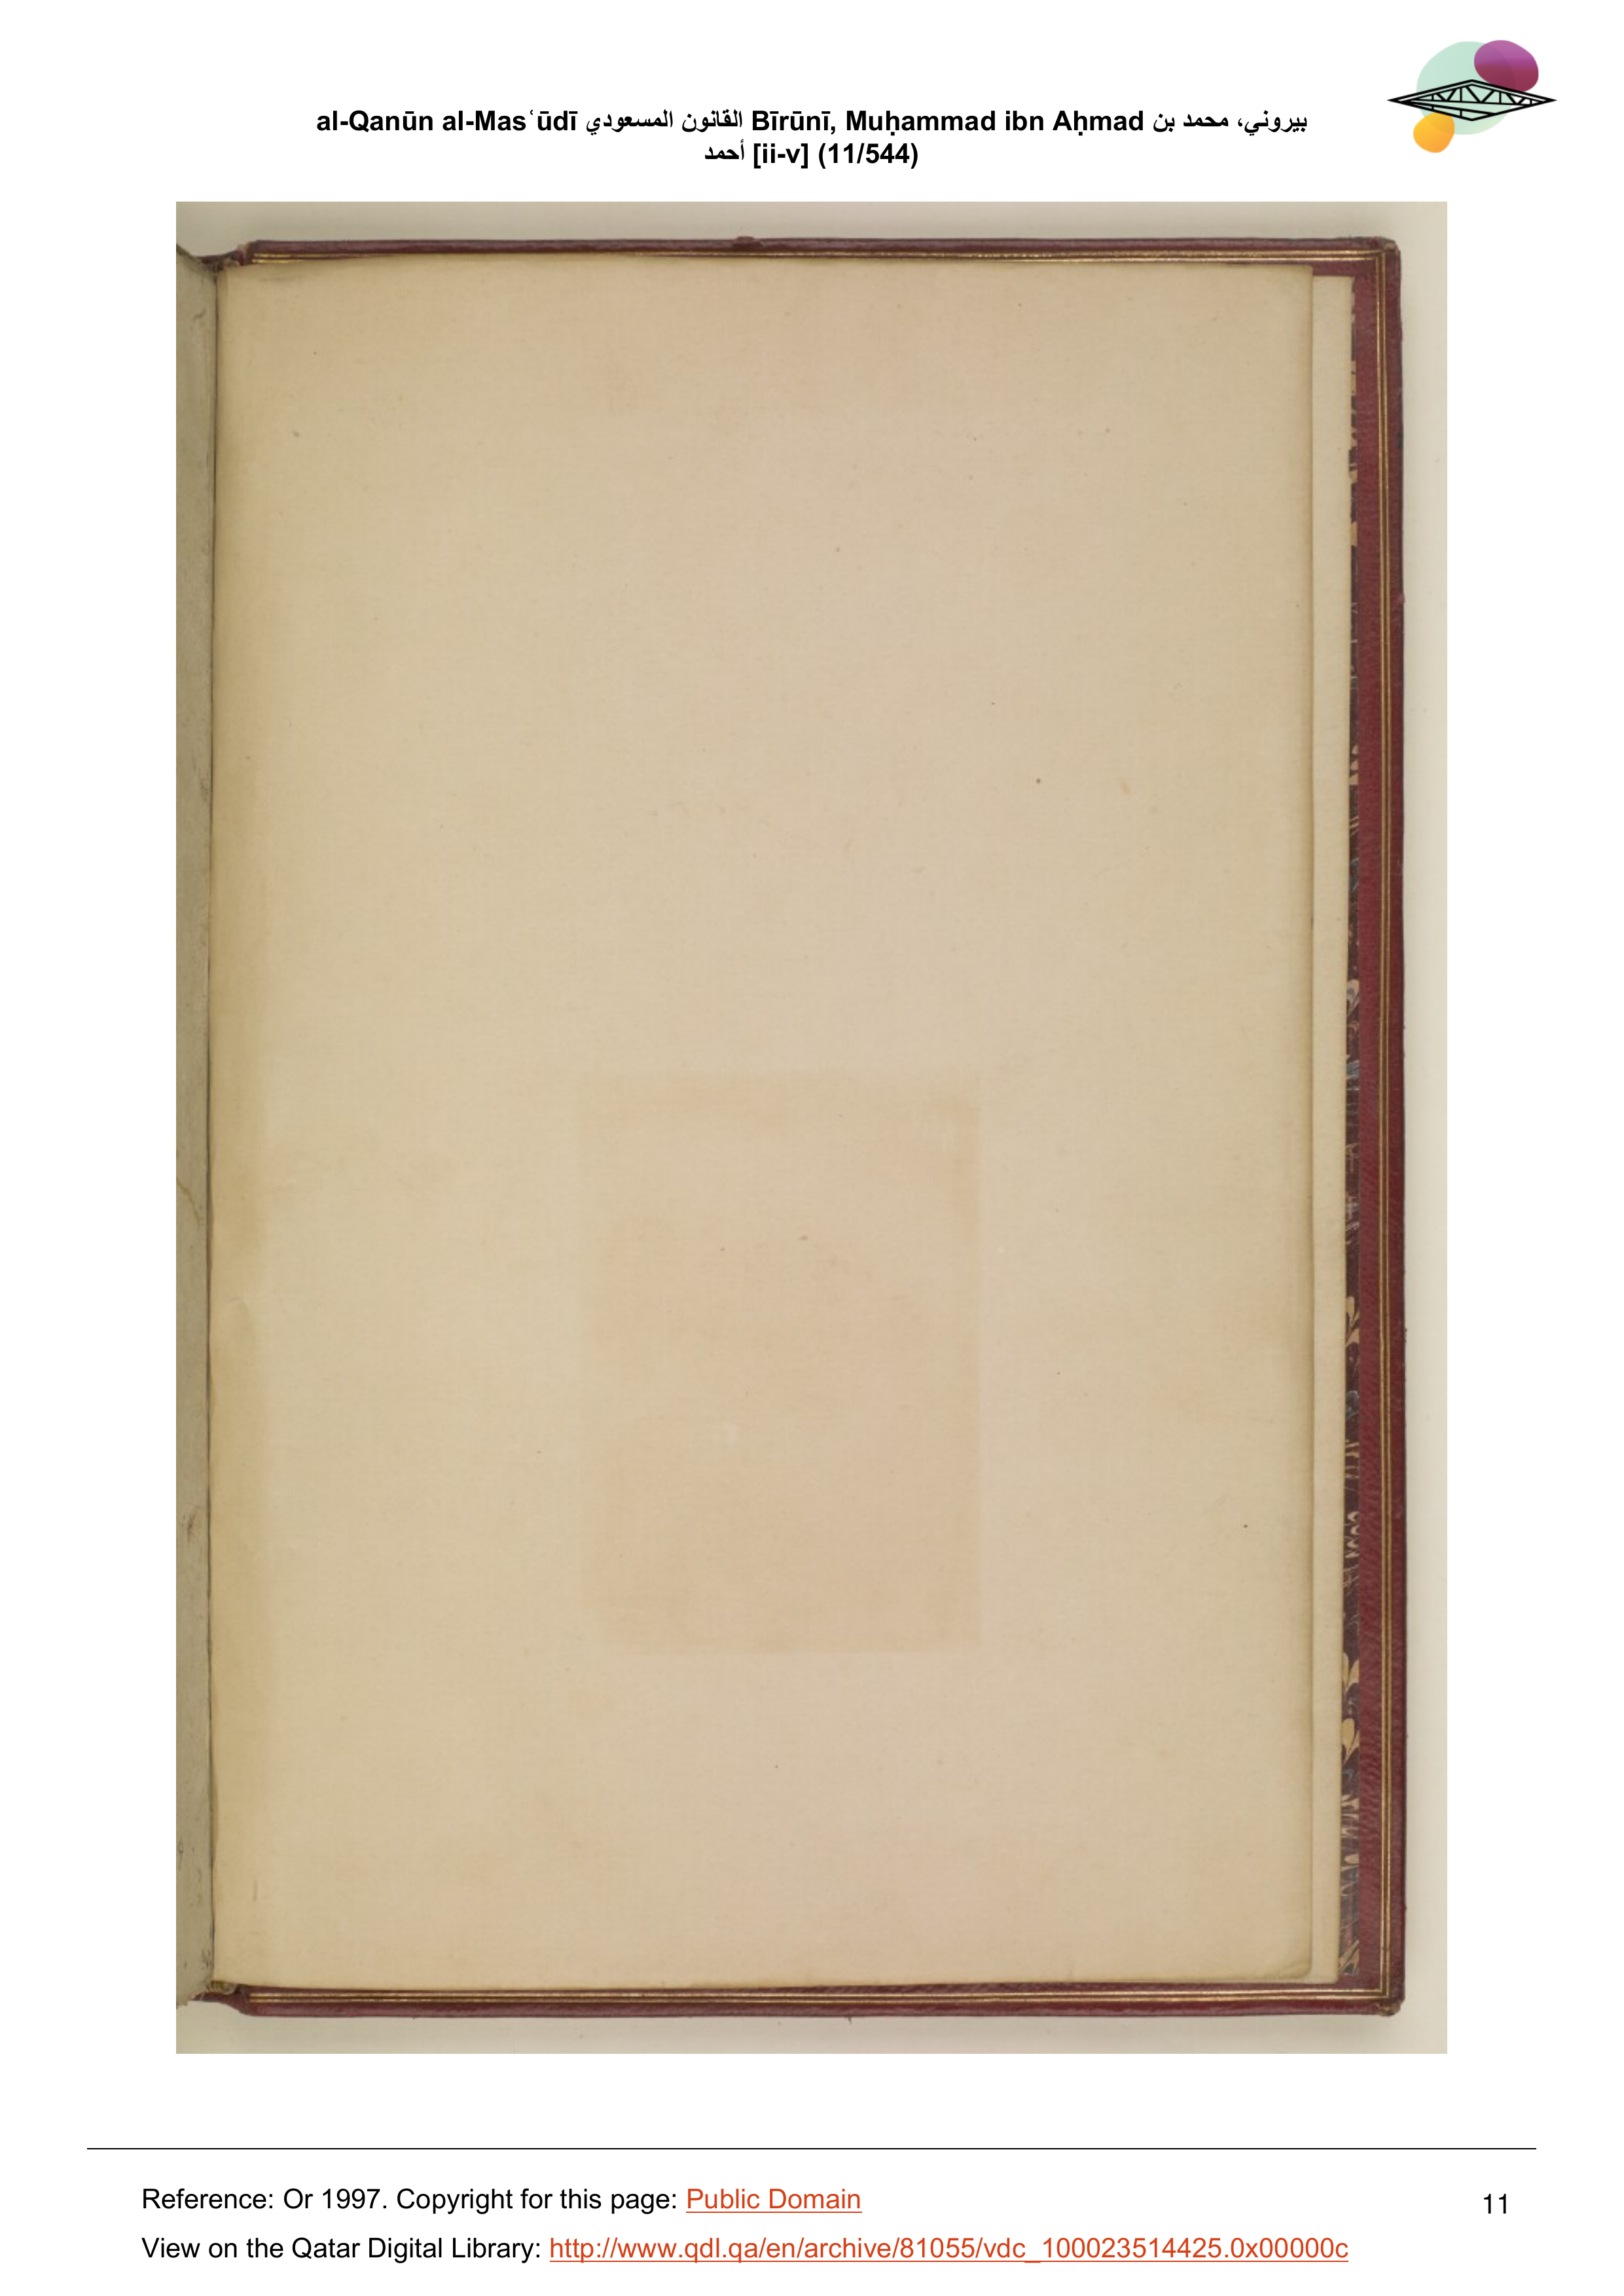 al-Qanūn al-Mas‘ūdī القانون المسعودي Bīrūnī, Muḥammad ibn Aḥmad بيروني، محمد بن
أحمد [ii-v] (11/544)
Reference: Or 1997. Copyright for this page: Public Domain
11
View on the Qatar Digital Library: http://www.qdl.qa/en/archive/81055/vdc_100023514425.0x00000c